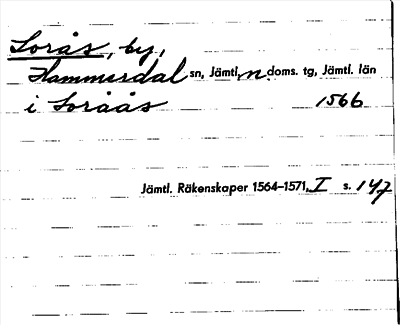 Sorås, by,
Hammerdal sn, Jämtl. n. doms. tg, Jämtl. län
i Soråås 1566
Jämtl. Räkenskaper 1564–1571, I s. 147